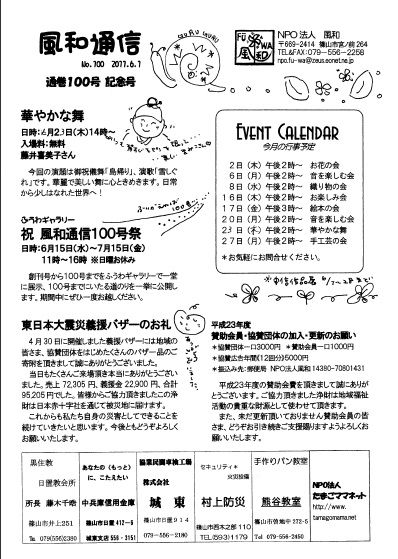 風和通信
No.100 2011.6.1
通巻100号 記念号
GURU GURU
Fu WA
風和
NPO法人 風和
〒669-2414 篠山市宮ノ前264
TEL&FAX:079-556-2258
npo.fu-wa@zeus.eonet.ne.jp
華やかな舞
日時:6月23日(木)14時〜
入場料:無料
藤井喜美子さん
今回の演題は御祝儀舞「島帰り」、演歌「雪しぐ
れ」です。華麗で美しい舞に心ときめきます。日常
から少しはなれた世界へ!
ふうわギャラリー
祝 風和通信100号祭
日時:6月15日(水)〜7月15日(金)
11時〜16時 ※日曜お休み
創刊号から100号までをふうわギャラリーで一堂
に展示、100号までにいたる道のりを一挙に公開し
ます。期間中にぜひ一度お越しください。
EVENT CALENDAR
今月の行事予定
2日(木)午後2時〜 お花の会
6日(月)午後2時〜 音を楽しむ会
8日(水)午後2時〜 織り物の会
16日(木)午後2時〜 お楽しみ会
17日(金)午後3時〜 絵本の会
20日(月)午後2時〜 音を楽しむ会
23日(木)午後2時〜 華やかな舞
27日(月)午後2時〜 手工芸の会
*お気軽にお問合せください。
東日本大震災義援バザーのお礼
4月30日に開催しました義援バザーには地域の
皆さま、協賛団体をはじめたくさんのバザー品のご
寄附を頂きまして誠にありがとうございました。
当日もたくさんご来場頂き本当にありがとうござい
ました。売上72,305円、義援金22,900円、合計
95,205円でした。皆様からご協力頂きましたこの浄
財は日本赤十字社を通じて被災地に届けます。
これからも私たち自身の災害としてできることを
続けていきたいと思います。今後ともどうぞよろしく
お願いいたします。
平成23年度
賛助会員・協賛団体の加入・更新のお願い
*協賛団体一口3000円 *賛助会員一口1000円
*協賛広告年間(12回分)5000円
*振込み先:郵便局 NPO法人風和 14380-70801431
平成23年度の賛助会費を頂きまして誠にありが
とうございます。ご協力頂きました浄財は地域福祉
活動の貴重な財源として使わせて頂きます。
また、未だ更新頂いておりません賛助会員の皆
さま、どうぞお引き続きご支援賜りますようよろしくお
願いいたします。
黒住教
日置教会所
所長 藤木千皓
篠山市井上251
Tel 079(556)2380
あなたの(もっと)
に、こたえたい
中兵庫信用金庫
篠山市日置412-5
城東支店 556-3151
協業民間車検工場
株式会社
城 東
篠山市日置914
079-556-2180
セキュリティ*
火災設備
村上防災
篠山市西木之部110
TEL(593)1179
手作りパン教室
熊谷教室
篠山市曽地中272-5
Tel 079-556-2450
NPO法人
たまごママネット
http://www.
tamagomama.net